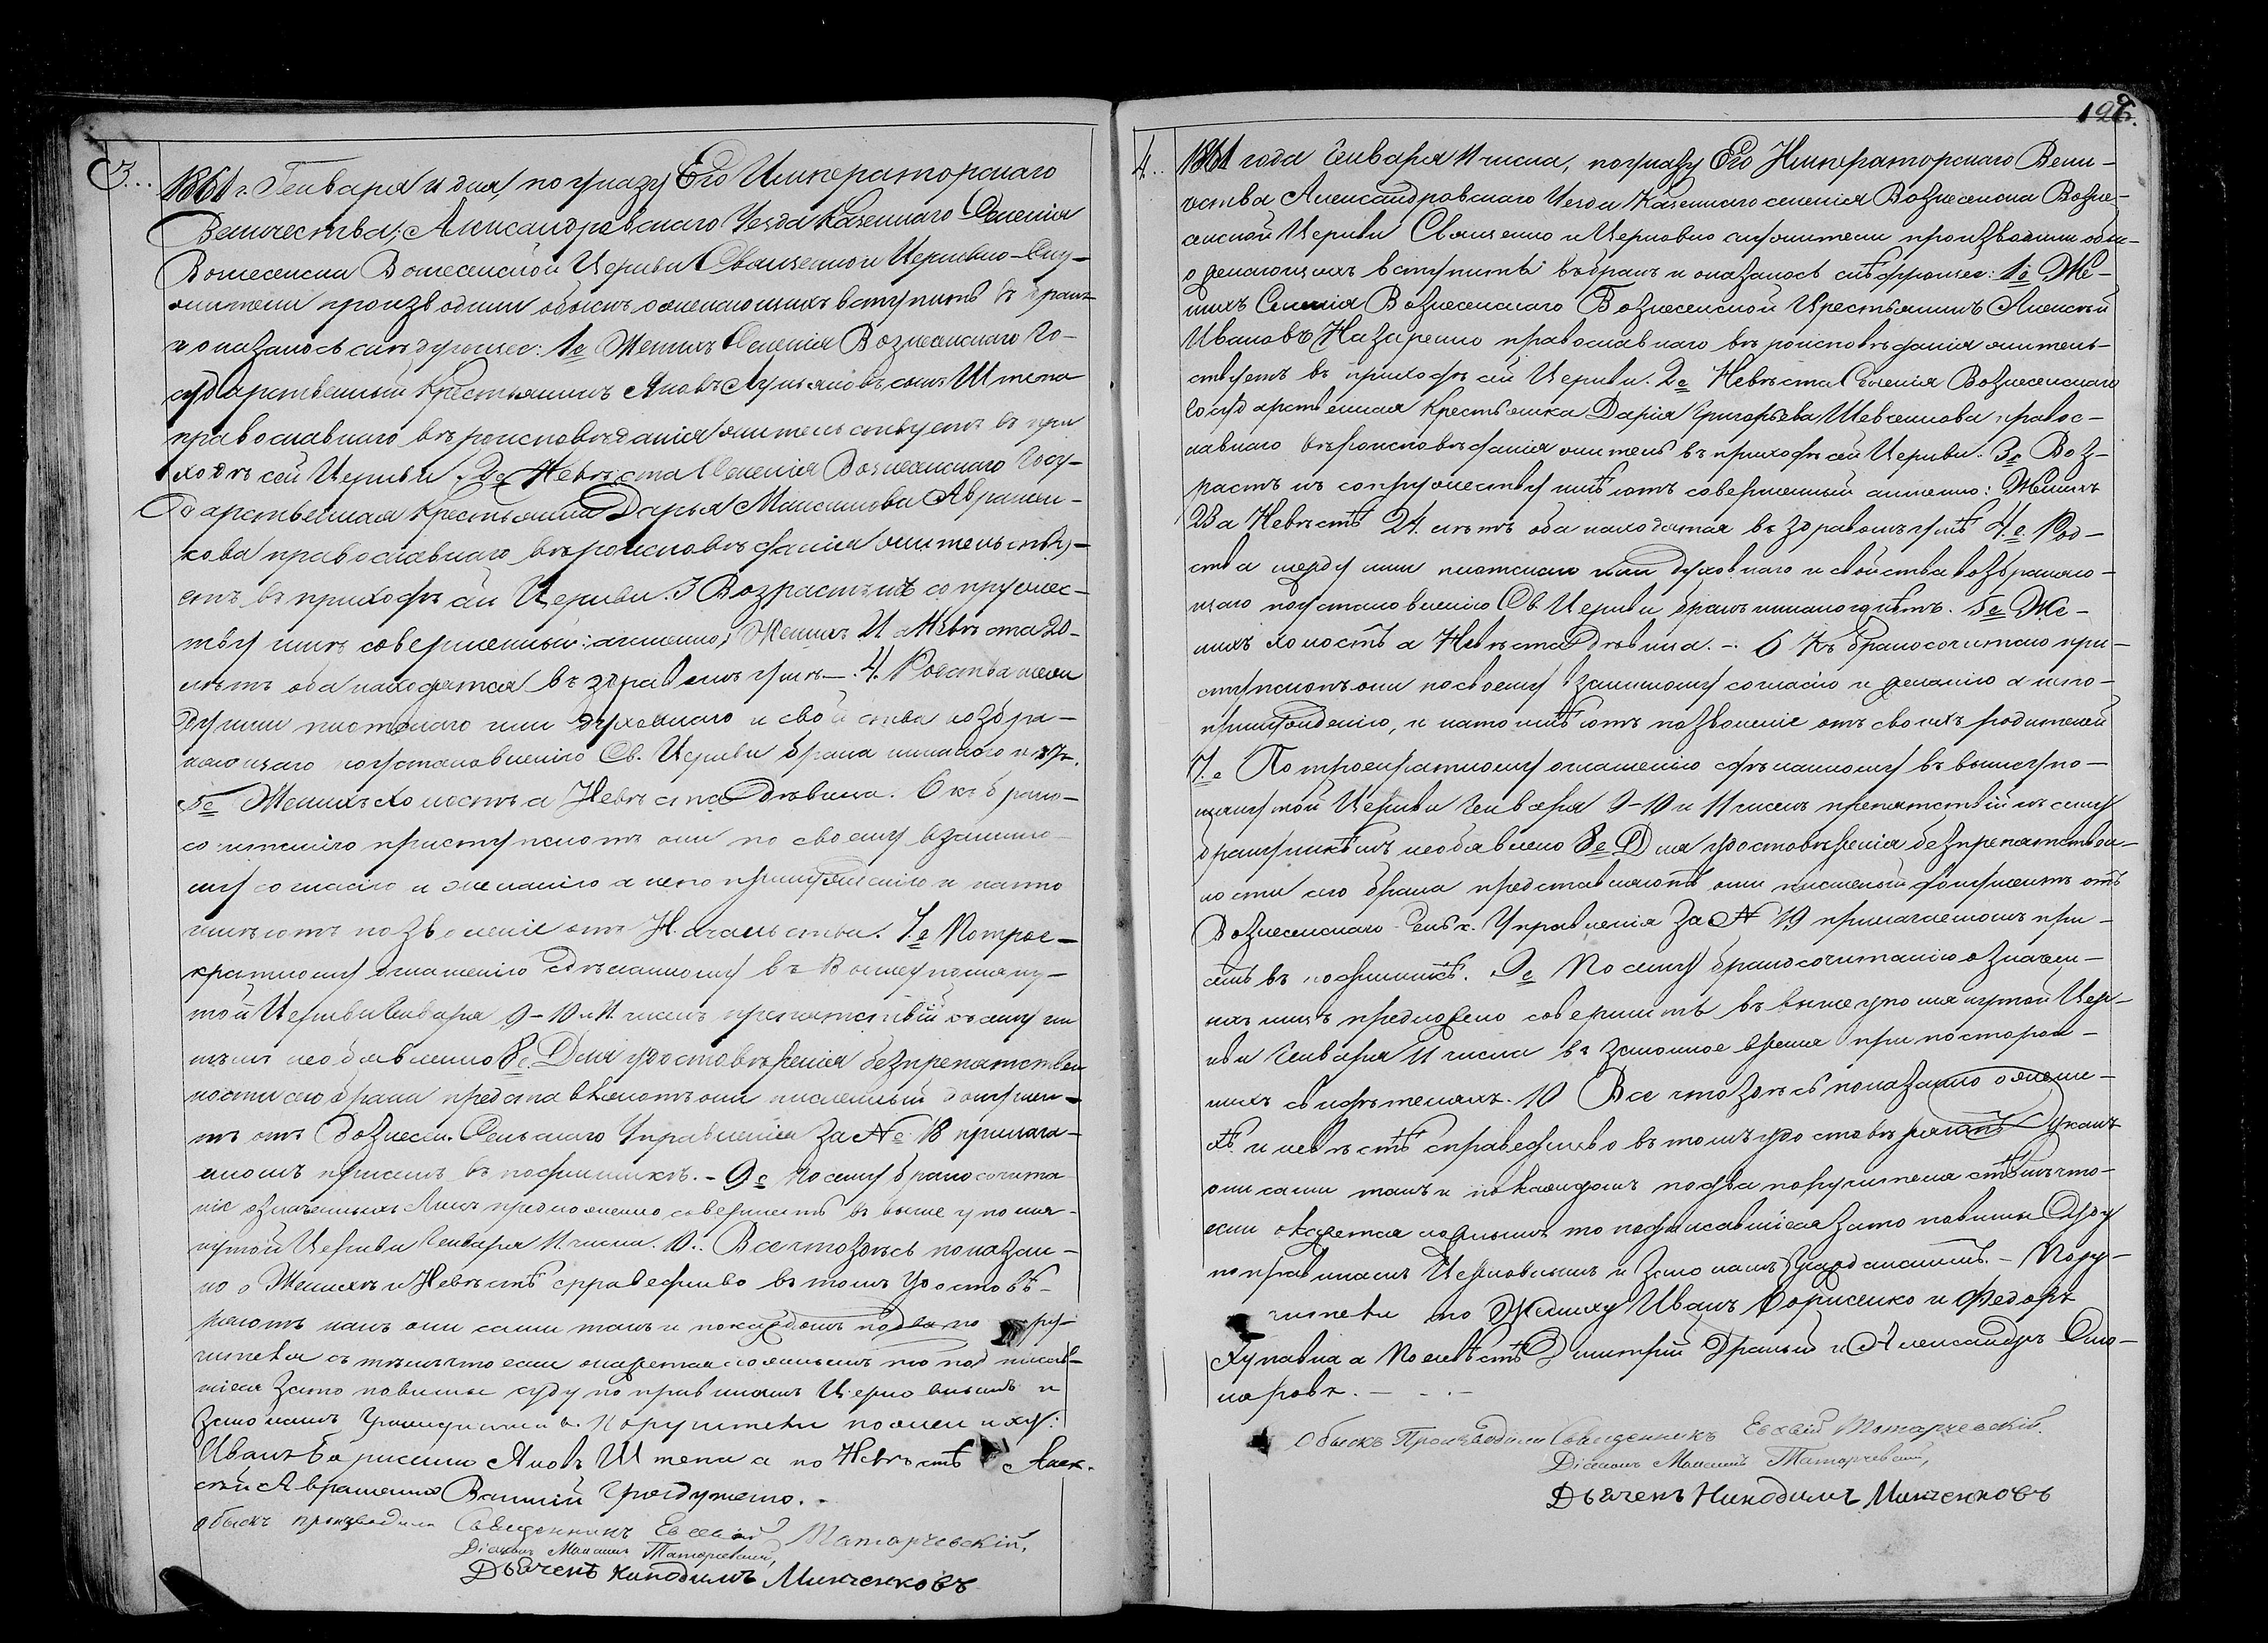 3...
1861 г. Генваря 11 дня, по указу Его Императорскаго
Величества; Александровскаго Уезда Казеннаго Селенія
Вознесенки Вознесенской Церкви Священно и Церковно-Слу-
жители производили обыскъ о желающихъ вступить въ бракъ
и оказалось следующее: 1е Женихъ Селенія Вознесенскаго Го-
сударственный Крестьянинъ Яковъ Лукьяновъ сынъ Штепа
православнаго вѣроисповѣданія жительствуетъ въ при
ходѣ сей Церкви. 2е Невѣста Селенія Вознесенскаго Госу-
дарственная крестьянка Дарья Максимова Авраменкова
кова православнаго вѣроисповѣданія жительству-
етъ въ приходѣ сей Церкви. 3 Возрастъ къ супружес-
тву имѣ совершенный: а именно; Женихъ 21 а Невѣста 20-
лѣтъ оба находятся въ здравомъ умѣ. — 4. Родства меж
ду ими плотскаго или духовнаго и свойства возбра-
няющаго по установленію Св. Церкви брака никакого нѣтъ.
5е Женихъ холостъ а Невѣста Дѣвица. 6 къ брако-
сочетанію приступаютъ они по своему взаимно-
му согласію и желанію а не по принужденію и на то
имѣютъ позволеніе отъ Начальства. 7.е По трое-
кратному оглашенію сдѣланному въ вышеупомяну-
той Церкви Генваря 9-10 и 11 чиселъ препятствій къ сему ни
кѣмъ необъявлено 8е. Для удостовѣренія безпрепятствен
ности сего брака представляютъ они писменный докумен-
тъ отъ Вознесен. Сельскаго Управленія за №е 18 прилага-
емомъ при семъ въ подлинникѣ. - 9е По сему бракосочета
ніе означенныхъ Лицъ предложено совершить въ выше упомя-
нутой Церкви Генваря 11. числа. 10.. Все что здѣсь показан-
но о Женихѣ и Невѣстѣ справедливо въ томъ удостовѣ-
ряютъ какъ они сами такъ и по каждомъ по два по ру-
чителя съ тѣмъ что если окажется ложнымъ то подписав-
шіеся за то повинны суду по правиламъ Церковнымъ и
законамъ Гражданскимъ. Поручители по жениху:
Иванъ Борисенко Яковъ Штепа а по Невѣстѣ Алек-
сѣй Авраменко
обыскъ производили Священникъ Евсевій Татарчевскій,
Діаконъ Максимъ Татарчевскій,
Дьячекъ Никодимъ Минченковъ
4..
1861 года Генваря 11 числа, по указу Его Императорскаго Вели-
чества Александровскаго Уезда Казеннаго селенія Вознесенска Возне-
сенской Церкви Священно и Церковно служители производили обыс-
о желающихъ вступить въ бракъ и оказалось слѣдующее: 1е Же-
нихъ Селенія Вознесенскаго Вознесенской Крестьянинъ Алексѣй
Ивановъ Назаренко православнаго вѣроисповѣданія житель-
ствуетъ въ приходѣ сей Церкви. 2е Невѣста Селенія Вознесенскаго
Государственная крестьянка Дарія Григорьева Шевченкова правос-
лавнаго вѣроисповѣданія жителъ въ приходѣ сей Церкви. 3е Воз-
растъ къ супружеству имѣютъ совершенный а именно: Женихъ
23 а Невѣстѣ 24. лѣтъ оба находятся въ здравомъ умѣ 4.е. Род-
ства между ими плотскаго или духовнаго и свойства возбраняю-
щаго по установленію Св. Церкви бракъ никакого нѣтъ. 5е Же-
нихъ холостъ а Невѣста Дѣвица. -. 6 Къ бракосочетанію при-
ступаютъ они по своему взаимному согласію и желанію а не по-
принужденію, и на то имѣютъ позволеніе отъ своихъ родителей
7.е По троекратному оглашенію сдѣланному въ вышеупо-
мянутой Церкви Генваря 9-10 и 11 чиселъ препятствій къ сему
браку никѣмъ необявлено 8е Для удостовѣренія безпрепятствен-
ности сего брака представляютъ они писменый документъ отъ
Вознесенскаго Сельс. Управленія за № 19 прилагаемомъ при-
семъ въ подлинникѣ. 9е По сему бракосочитанію означен-
ныхъ лицъ предложено совершить въ вышеупомянутой Цер-
кви Генваря 11 числа въ законное время при посторон-
нихъ свидѣтеляхъ. 10 Все что здѣсь показанно о жени-
хѣ и невѣстѣ справедливо въ томъ удостовѣряютъ какъ
они сами такъ и по каждомъ по два поручителя стѣмъ что-
если окажется ложнымъ то подписавшіеся за то повинны Суду
по правиламъ Церковнымъ и законамъ Гражданскимъ. - Пору-
чители по Жениху Иванъ Борисенко и Федоръ
а По невѣстѣ Димитрій и Александръ
Обыскъ Производили Священникъ Евсевій Татарчевскій.
Діаконъ Максимъ Татарчевскій,
Дьячекъ Никодимъ Минченковъ